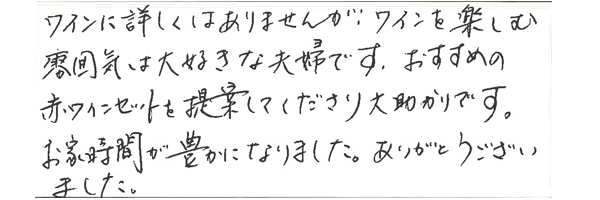 ワインに詳しくはありませんが、ワインを楽しむ
雰囲気は大好きな夫婦です。おすすめの
赤ワインセットを提案してくださり大助かりです。
お家時間が豊かになりました。ありがとうござい
ました。